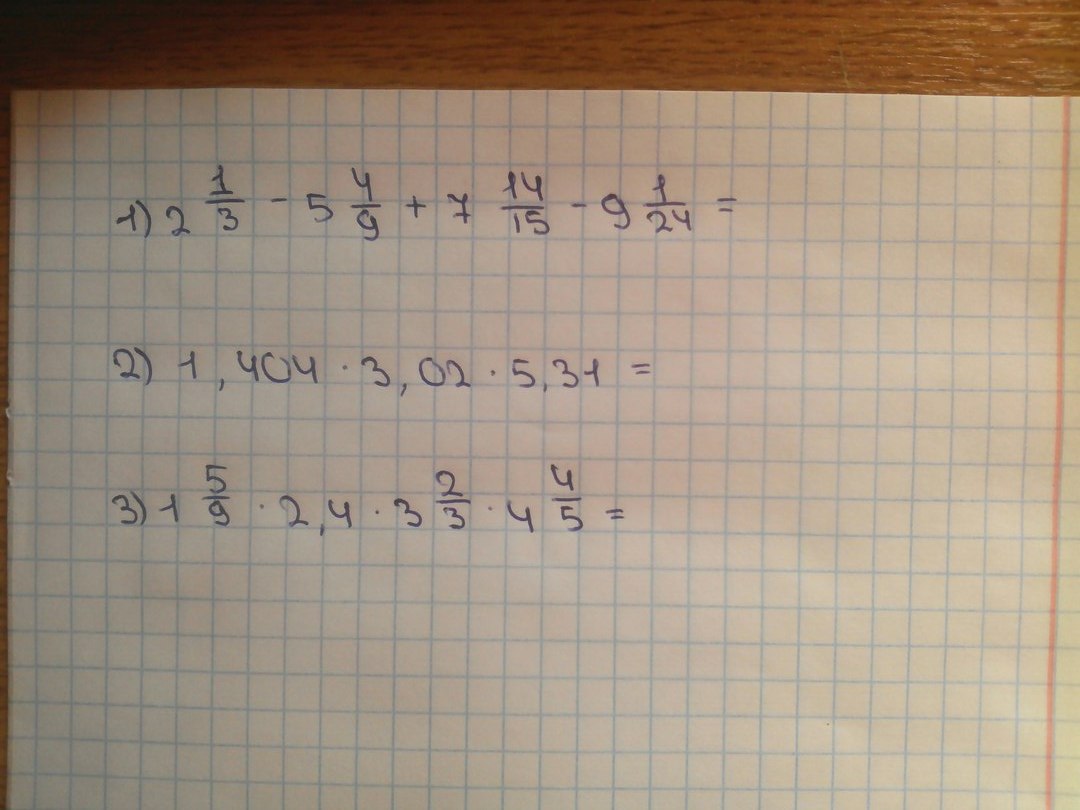 1) 2 1/3 - 5 4/9 + 7 14/15 - 9 1/24 =
2) 1,404 · 3,02 · 5,31 =
3) 1 5/9 · 2,4 · 3 2/3 · 4 4/5 =